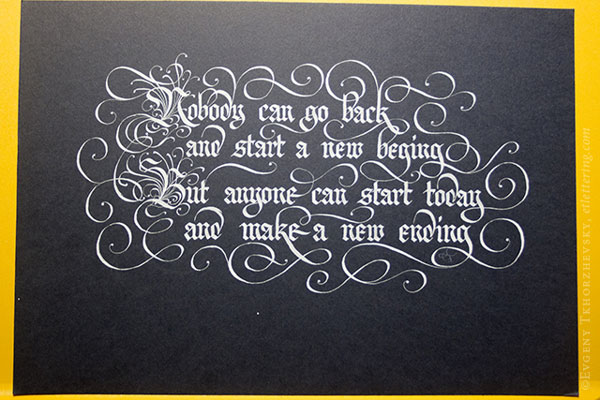 Nobody can go back
and start a new beging
But anyone can start today
and make a new ending
© Evgeny Tkhorzhevsky, etlettering.com